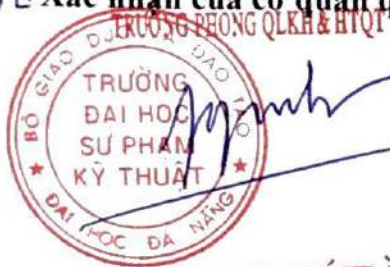 Xác nhận của cơ quan
TRƯỞNG PHÒNG QLKH & HTQT
BỘ GIÁO DỤC VÀ ĐÀO TẠO
TRƯỜNG
ĐẠI HỌC
SƯ PHẠM
KỸ THUẬT
ĐẠI HỌC ĐÀ NẴNG